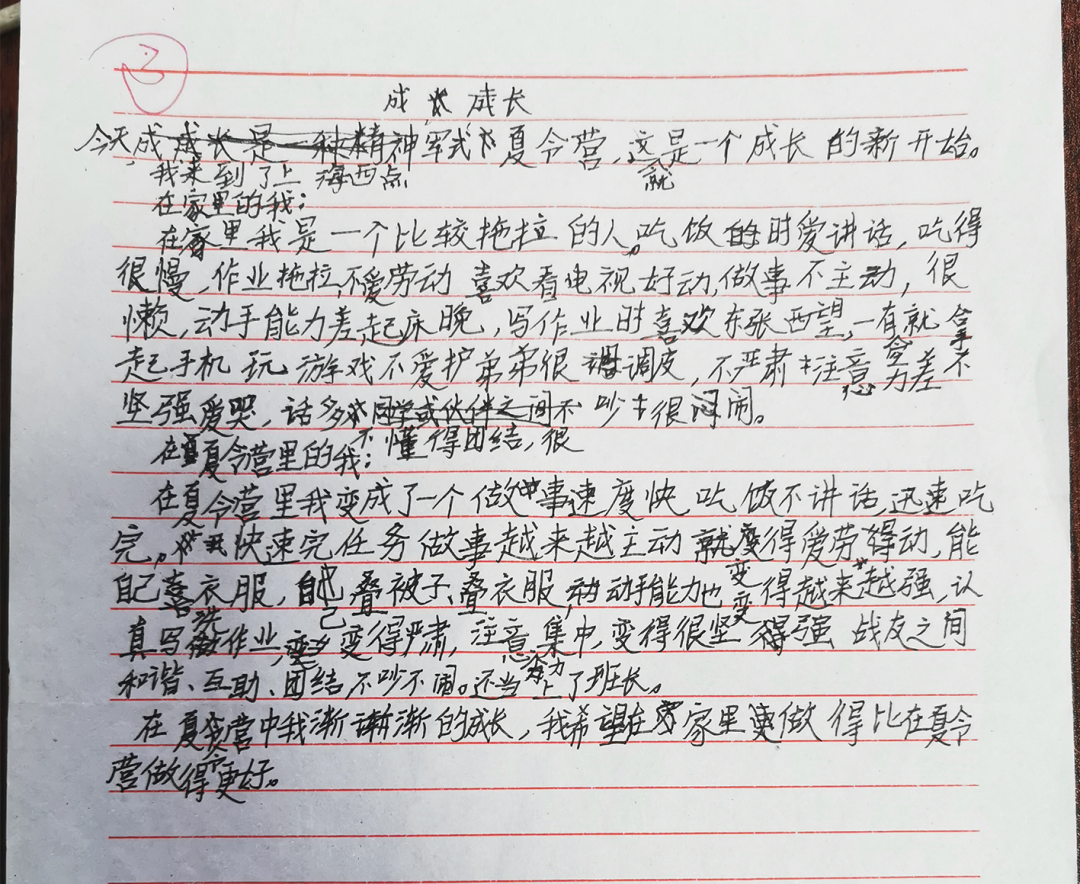 3
成长
今天,成成长,是一种精神军式夏令营,这是一个成长的新开始。
我来到了上海西点
就
在家里的我:
在家里我是一个比较拖拉的人。吃饭的时爱讲话,吃得
很慢,作业拖拉,不爱劳动喜欢看电视好动,做事不主动,很
懒,动手能力差,起床晚,写作业时喜欢东张西望,一有就拿
起手机玩游戏不爱护弟弟很调皮,不严肃注意力差不
坚强爱哭,话多同学或伙伴之间不吵很闷闹。
不懂得团结,很
在夏令营里的我:
在夏令营里我变成了一个做事速度快吃饭不讲话迅速吃
完。快速完任务做事越来越主动就变得爱劳得动,能
自己洗衣服,自己叠被子、叠衣服,动手能力也变得越来越强,认
真写作业,变得严肃,注意力集中,变得很坚强战友之间
和谐、互助、团结,不吵不闹。还当上了班长。
在夏令营中我渐渐的成长,我希望在家里更做得比在夏令
营做得更好。